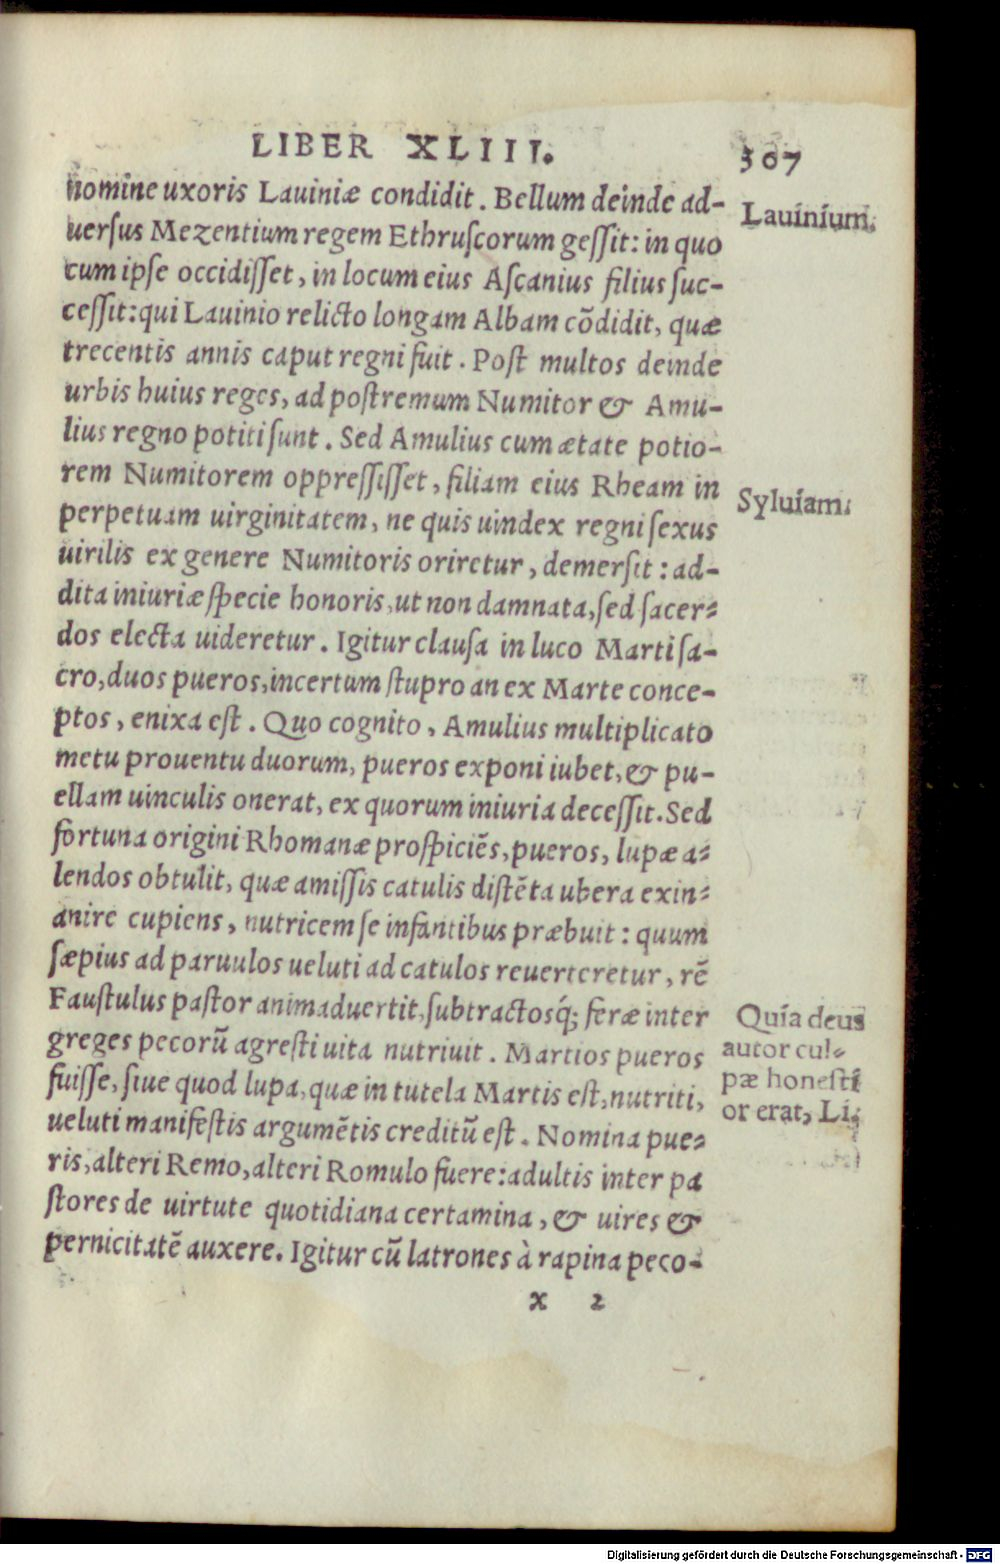 LIBER XLIII. 307
nomine uxoris Lauiniæ condidit. Bellum deinde ad-
Lauinium.
uersus Mezentium regem Ethruscorum gessit: in quo
cum ipse occidisset, in locum eius Ascanius filius suc-
cessit: qui Lauinio relicto longam Albam cōdidit, quæ
trecentis annis caput regni fuit. Post multos deinde
urbis huius reges, ad postremum Numitor & Amu-
lius regno potiti sunt. Sed Amulius cum ætate potio-
rem Numitorem oppressisset, filiam eius Rheam in
Syluiam.
perpetuam uirginitatem, ne quis uindex regni sexus
uirilis ex genere Numitoris oriretur, demersit: ad-
dita iniuriæ specie honoris, ut non damnata, sed sacer-
dos electa uideretur. Igitur clausa in luco Marti sa-
cro, duos pueros, incertum stupro an ex Marte conce-
ptos, enixa est. Quo cognito, Amulius multiplicato
metu prouentu duorum, pueros exponi iubet, & pu-
ellam uinculis onerat, ex quorum iniuria decessit. Sed
fortuna origini Rhomanæ prospiciēs, pueros, lupæ a-
lendos obtulit, quæ amissis catulis distēta ubera exin-
anire cupiens, nutricem se infantibus præbuit: quum
sæpius ad paruulos ueluti ad catulos reuerteretur, rē
Faustulus pastor animaduertit, subtractosq́; feræ inter
greges pecorū agresti uita nutriuit. Martios pueros
fuisse, siue quod lupa, quæ in tutela Martis est, nutriti,
ueluti manifestis argumētis creditū est. Nomina pue-
ris, alteri Remo, alteri Romulo fuere: adultis inter pa
stores de uirtute quotidiana certamina, & uires &
pernicitatē auxere. Igitur cū latrones à rapina peco-
Quia deus
autor cul-
pæ honesti
or erat, Li.
x 2
Digitalisierung gefördert durch die Deutsche Forschungsgemeinschaft - DFG